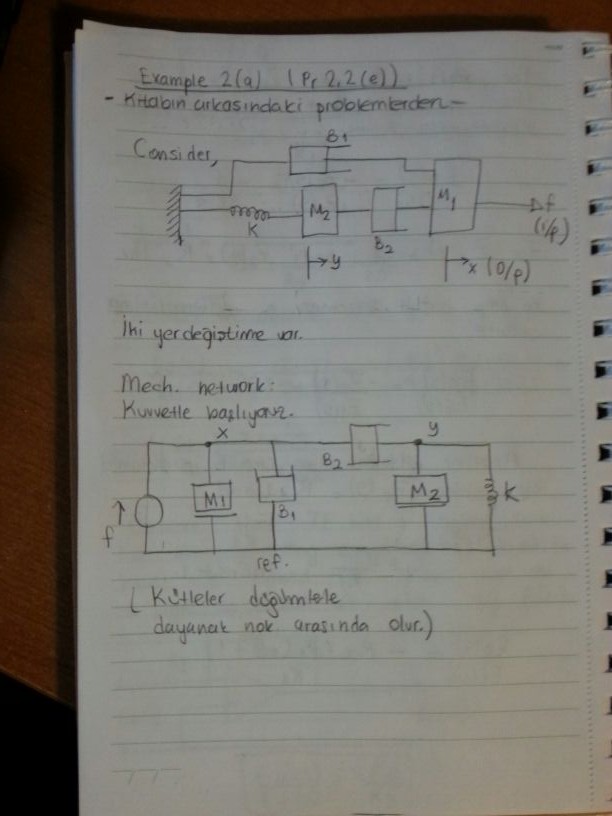 Example 2(a) (Pr 2,2(e))
- Kitabın arkasındaki problemlerden -
Consider,
B1
K
M2
B2
M1
f
(i/p)
y
x (O/p)
İki yerdeğiştirme var.
Mech. network:
Kuvvetle başlıyoruz.
x
y
f
M1
B1
B2
M2
K
ref.
( Kütleler düğümlerle
dayanak nok arasında olur.)